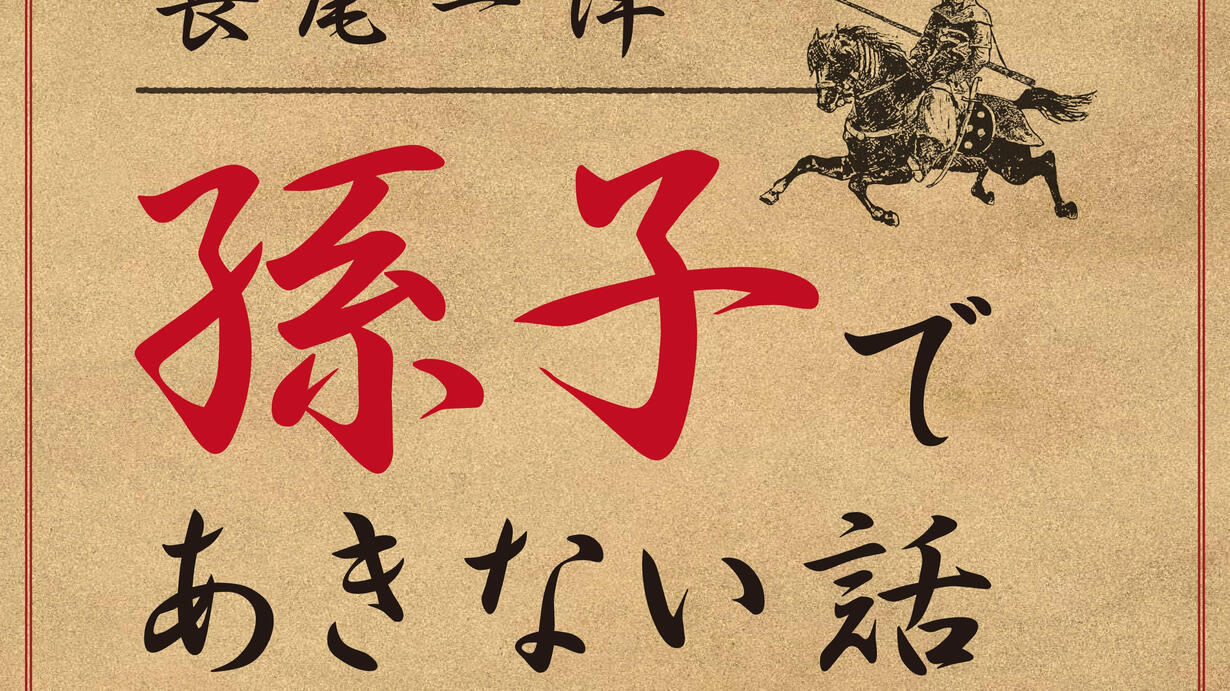 長尾一洋
孫子で
あきない話